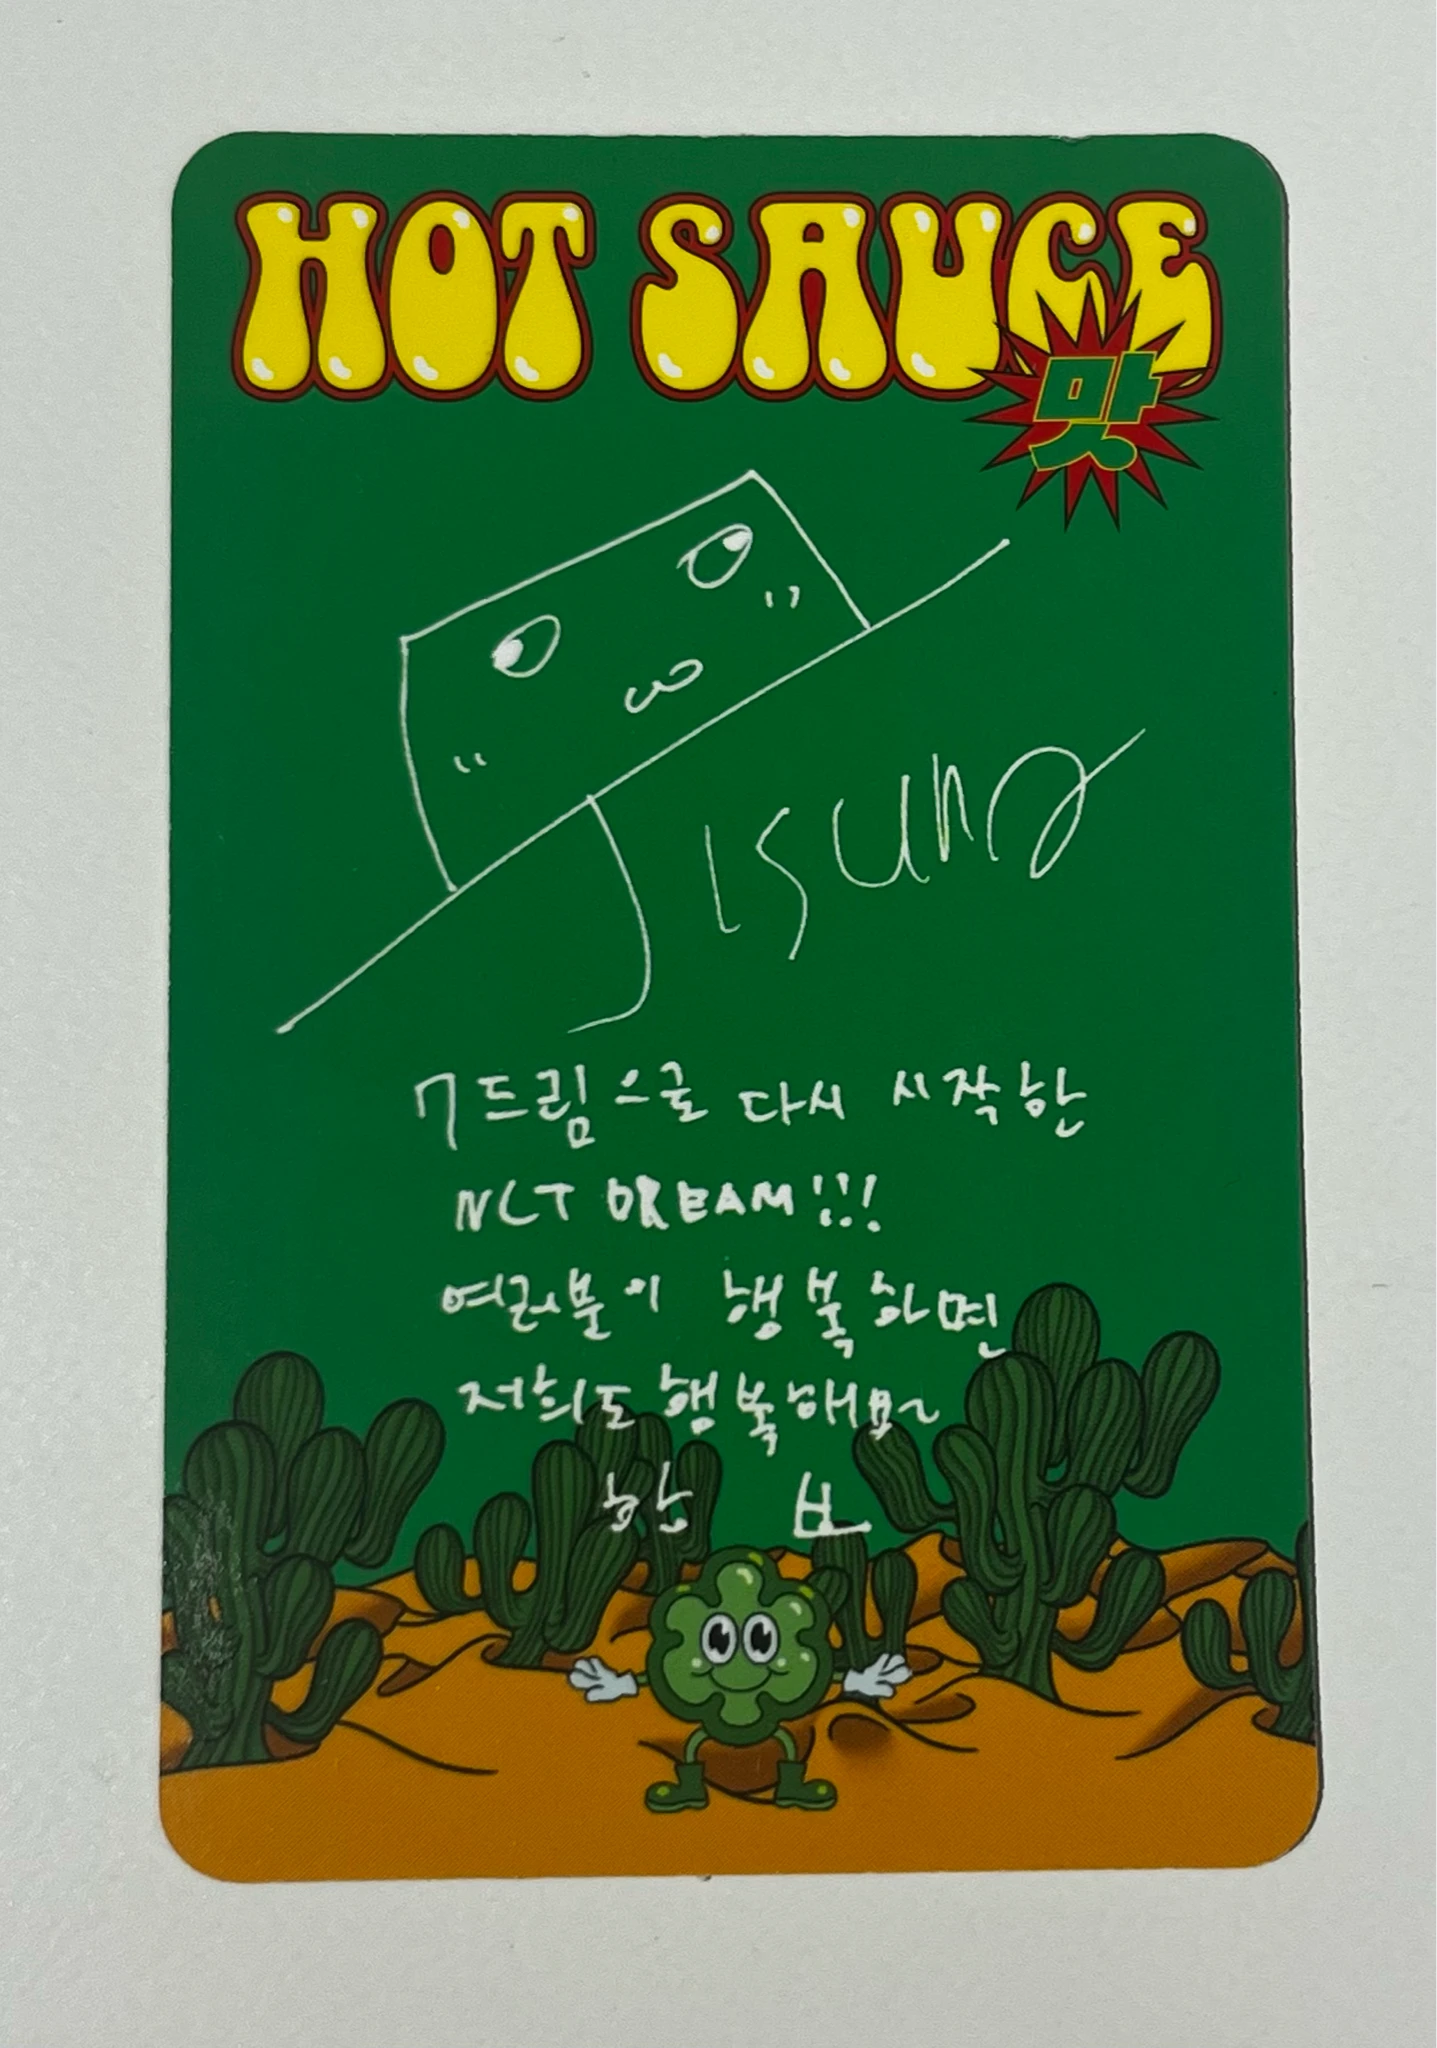 HOT SAUCE
맛
JISUNG
7드림으로 다시 시작한
NCT DREAM!!!
여러분이 행복하면
저희도 행복해요~